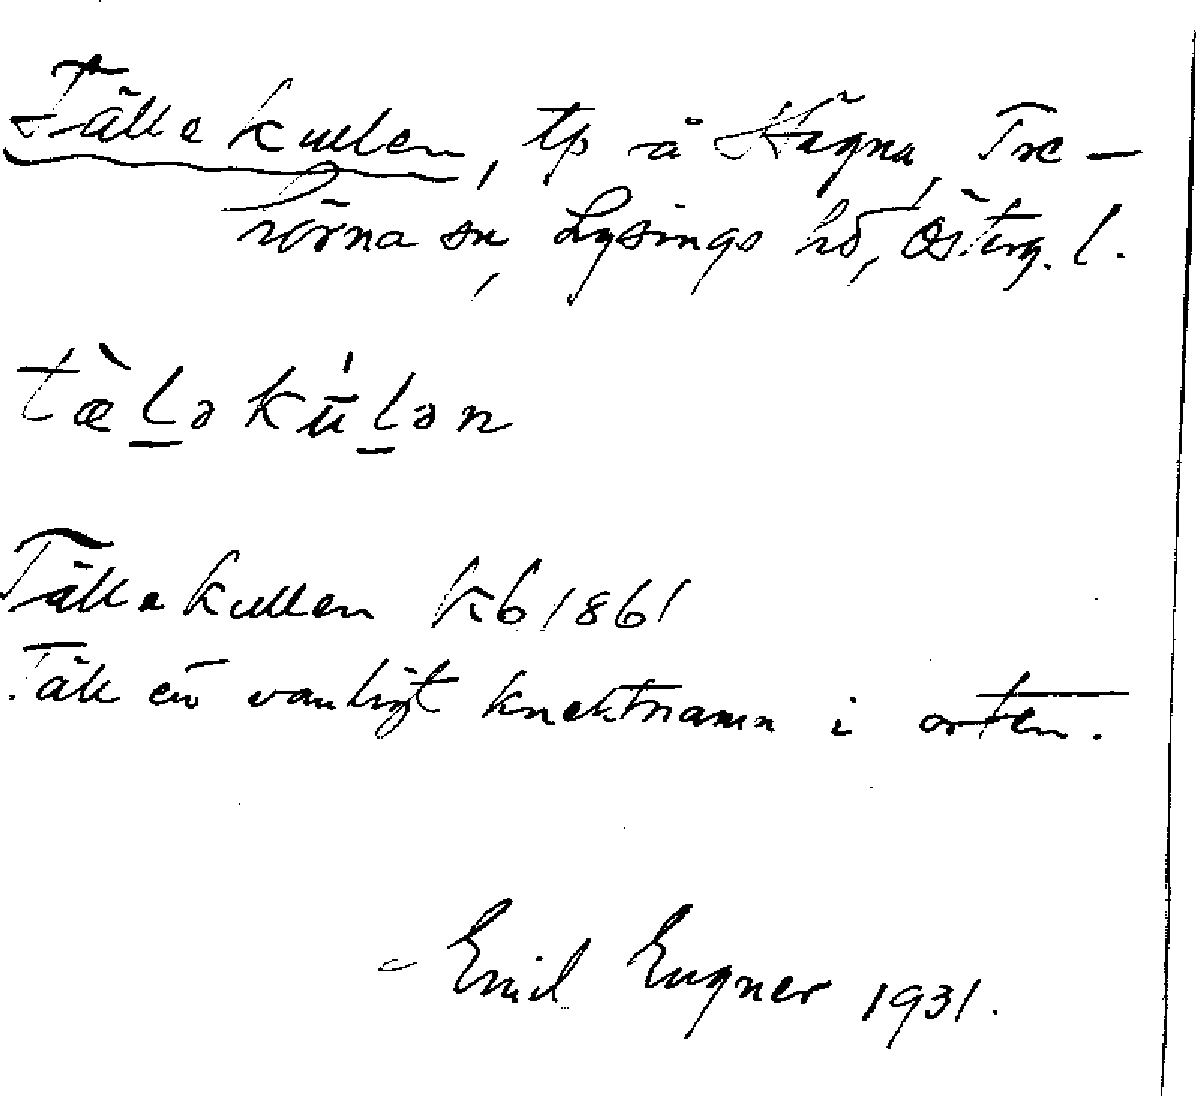 Tällekullen, tp å Hägna, Tre-
hörna sn, Lysings hd, Österg. l.
tæ̀lǝkúlǝn
Tällekullen kb 1861
Täll ett vanligt knektnamn i orten.
Emil Eugner 1931.